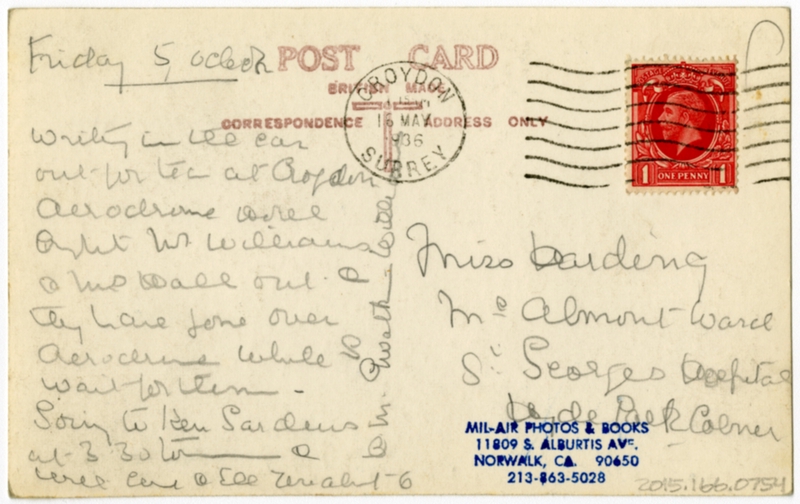 Friday 5, oclock
POST CARD
BRITISH MADE
CORRESPONDENCE
ADDRESS ONLY
CROYDON
16 MAY
1936
SURREY
1 ONE PENNY 1
Writing in the car
out for tea at Croydon
Aerodrome
Mr Williams
out.
they have gone over
Aerodrome while
wait for them -
Going to Kew Gardens
at 3.30
Miss Harding
Almont Ward
St Georges Hospital
Hyde Park Corner
MIL-AIR PHOTOS & BOOKS
11809 S. ALBURTIS AVE.
NORWALK, CA. 90650
213-863-5028
2015.166.0754